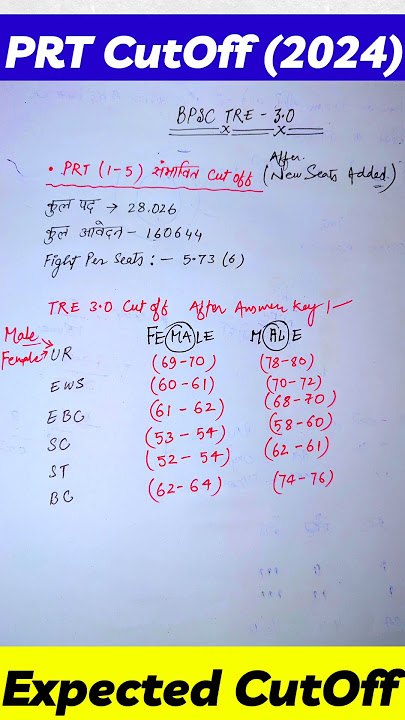 PRT CutOff (2024)
BPSC TRE - 3.0
x x
After.
• PRT (1-5) संभावित Cut off (New Seats Added.)
कुल पद → 28.026
कुल आवेदन - 160644
Fight Per Seats :- 5.73 (6)
TRE 3.0 Cut off After Answer Key 1
Male
FEMALE MALE
Female UR (69-70) (78-80)
EWS (60-61) (70-72)
EBC (61-62) (68-70)
SC (53-54) (58-60)
ST (52-54) (62-61)
BC (62-64) (74-76)
Expected CutOff